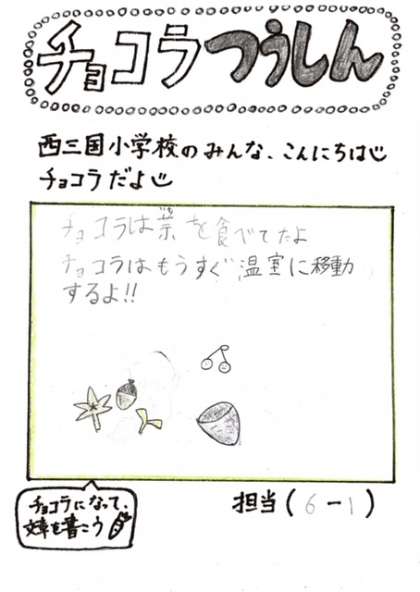 チョコラつうしん
西三国小学校のみんな、こんにちは
チョコラだよ
チョコラは葉を食べてたよ
チョコラはもうすぐ温室に移動
するよ!!
担当(6-1)
チョコラになって、
文章を書こう